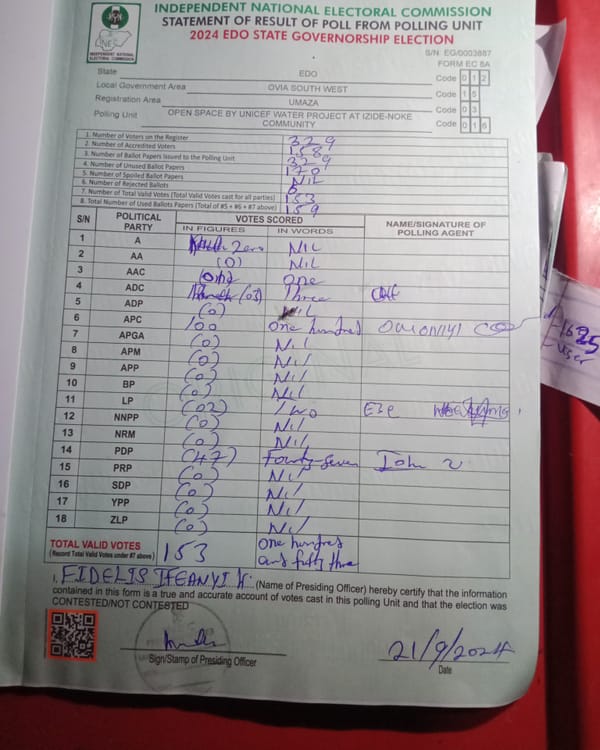 INDEPENDENT NATIONAL ELECTORAL COMMISSION
STATEMENT OF RESULT OF POLL FROM POLLING UNIT
2024 EDO STATE GOVERNORSHIP ELECTION
INEC
INDEPENDENT NATIONAL
ELECTORAL COMMISSION
S/N: EG/0003887
FORM EC 8A
State EDO Code 0 1 2
Local Government Area OVIA SOUTH WEST Code 1 5
Registration Area UMAZA Code 0 3
Polling Unit OPEN SPACE BY UNICEF WATER PROJECT AT IZIDE-NOKE COMMUNITY Code 0 1 6
1. Number of Voters on the Register 329
2. Number of Accredited Voters 158
3. Number of Ballot Papers Issued to the Polling Unit 329
4. Number of Unused Ballot Papers 170
5. Number of Spoiled Ballot Papers NIL
6. Number of Rejected Ballots 6
7. Number of Total Valid Votes (Total Valid Votes cast for all parties) 153
8. Total Number of Used Ballots Papers (Total of #5 + #6 + #7 above) 159
S/N POLITICAL PARTY VOTES SCORED NAME/SIGNATURE OF POLLING AGENT
IN FIGURES IN WORDS
1 A Zero NIL
2 AA (0) NIL
3 AAC one
4 ADC (03) Three
5 ADP (0) NIL
6 APC 100 One hundred
7 APGA (0) Nil
8 APM (0) Nil
9 APP (0) Nil
10 BP (0) Nil
11 LP (02) Two
12 NNPP (0) Nil
13 NRM (0) Nil
14 PDP (47) Fourty-seven John
15 PRP (0) Nil
16 SDP (0) Nil
17 YPP (0) Nil
18 ZLP (0) Nil
TOTAL VALID VOTES 153 One hundred
(Record Total Valid Votes under #7 above) and fifty three
I, FIDELIS IFEANYI (Name of Presiding Officer) hereby certify that the information
contained in this form is a true and accurate account of votes cast in this polling Unit and that the election was
CONTESTED/NOT CONTESTED
21/9/2024
Sign/Stamp of Presiding Officer Date